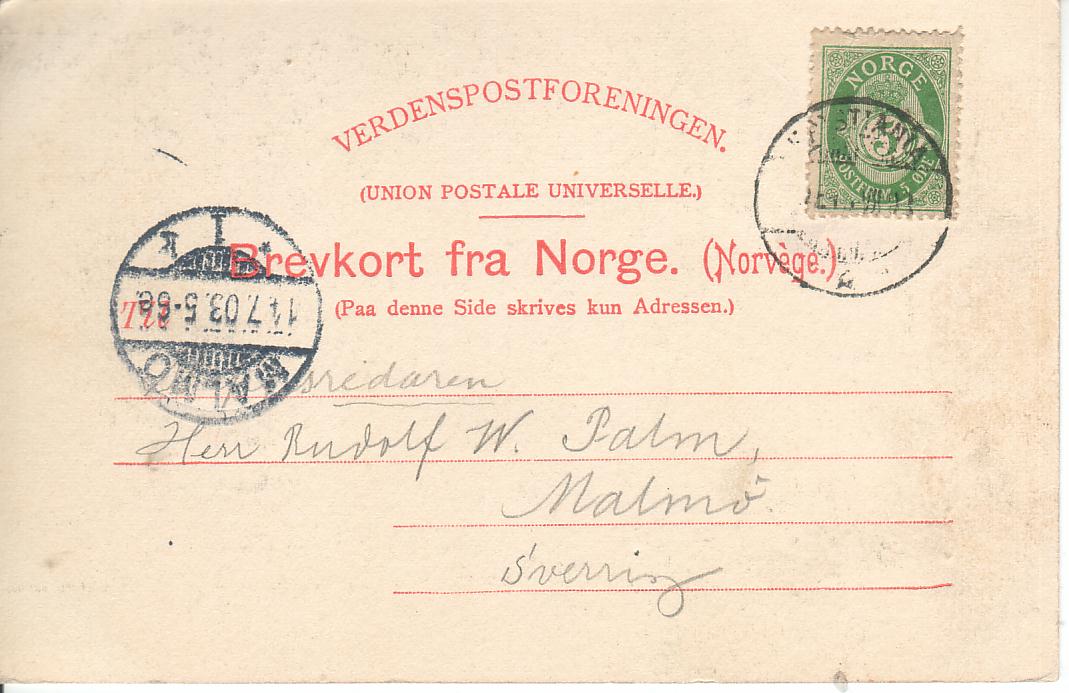 VERDENSPOSTFORENINGEN.
(UNION POSTALE UNIVERSELLE.)
Brevkort fra Norge. (Norvège.)
(Paa denne Side skrives kun Adressen.)
NORGE
5
POSTFRIM. 5 ØRE
MALMÖ
14.7.03.5-6e.
1
K
Til
Herr Rudolf W. Palm,
Malmö.
Sverrig